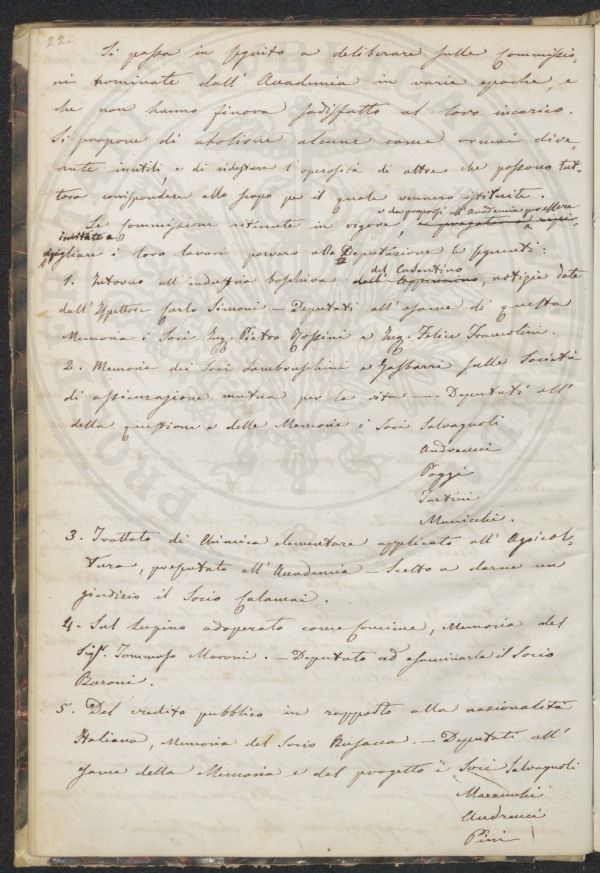 22.
Si passa in seguito a deliberare sulle Commissio-
ni nominate dall' Accademia in varie epoche, e
che non hanno finora sodisfatto al loro incarico.
Si propone di abolirne alcune come ormai dive-
nute inutili, e di ridestare l'operosità di altre che possono tut-
tora corrispondere allo scopo per il quale vennero istituite.
Le Commissioni ritenute in vigore, e da proporsi all' Accademia per essere
invitate a
sbrigliare i loro lavori parvero alla Deputazione le seguenti:
1. Intorno all'industria boschiva dell'Appennino, del Casentino, notizie date
dall' Ispettore Carlo Simoni — Deputati all' esame di questa
Memoria i Soci Ing. Pietro Rossini e Ing. Felice Francolini.
2. Memorie dei Soci Lambruschini e Gasbarri sulle Società
di assicurazione mutua per la vita — Deputati all'
della questione e delle Memorie i Soci Salvagnoli
Andreucci
Poggi
Tartini
Municchi.
3. Trattato di Chimica elementare applicato all' Agricol-
tura, presentato all' Accademia — Scelto a darne un
giudizio il Socio Calamai.
4. Sul Lupino adoperato come Concime, Memoria del
Sigr. Tommaso Moroni. — Deputato ad esaminarla il Socio
Baroni.
5. Del credito pubblico in rapporto alla nazionalità
Italiana, Memoria del Socio Busacca. — Deputati all'
same della Memoria e del progetto i Soci Salvagnoli
Mazzinghi
Andreucci
Pini